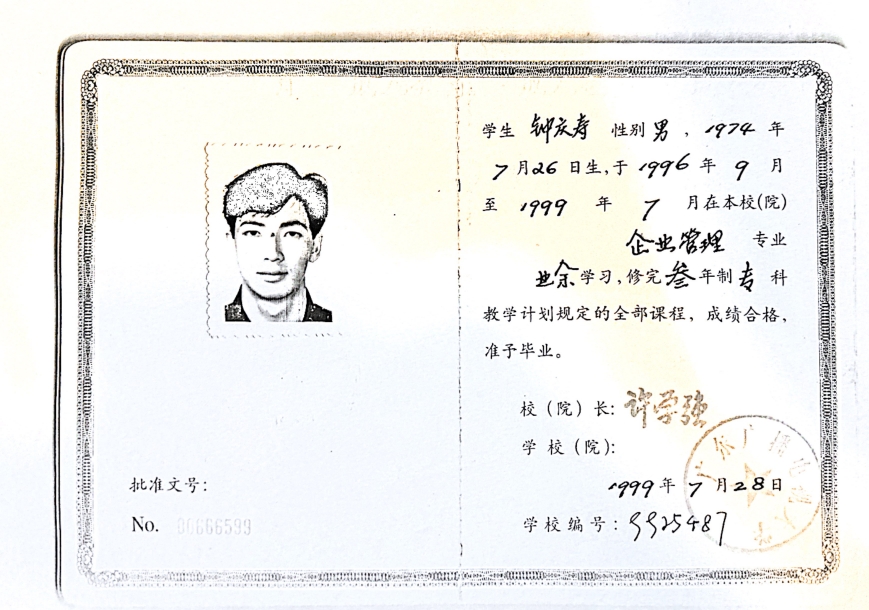 批准文号：
No. 00666599
学生 钟庆寿 性别 男 ，1974 年
7 月 26 日生，于 1996 年 9 月
至 1999 年 7 月在本校(院)
企业管理 专业
业余 学习，修完 叁 年制 专 科
教学计划规定的全部课程，成绩合格，
准予毕业。
校（院）长：许学强
学 校（院）：
1999 年 7 月 28 日
学校编号：9925487